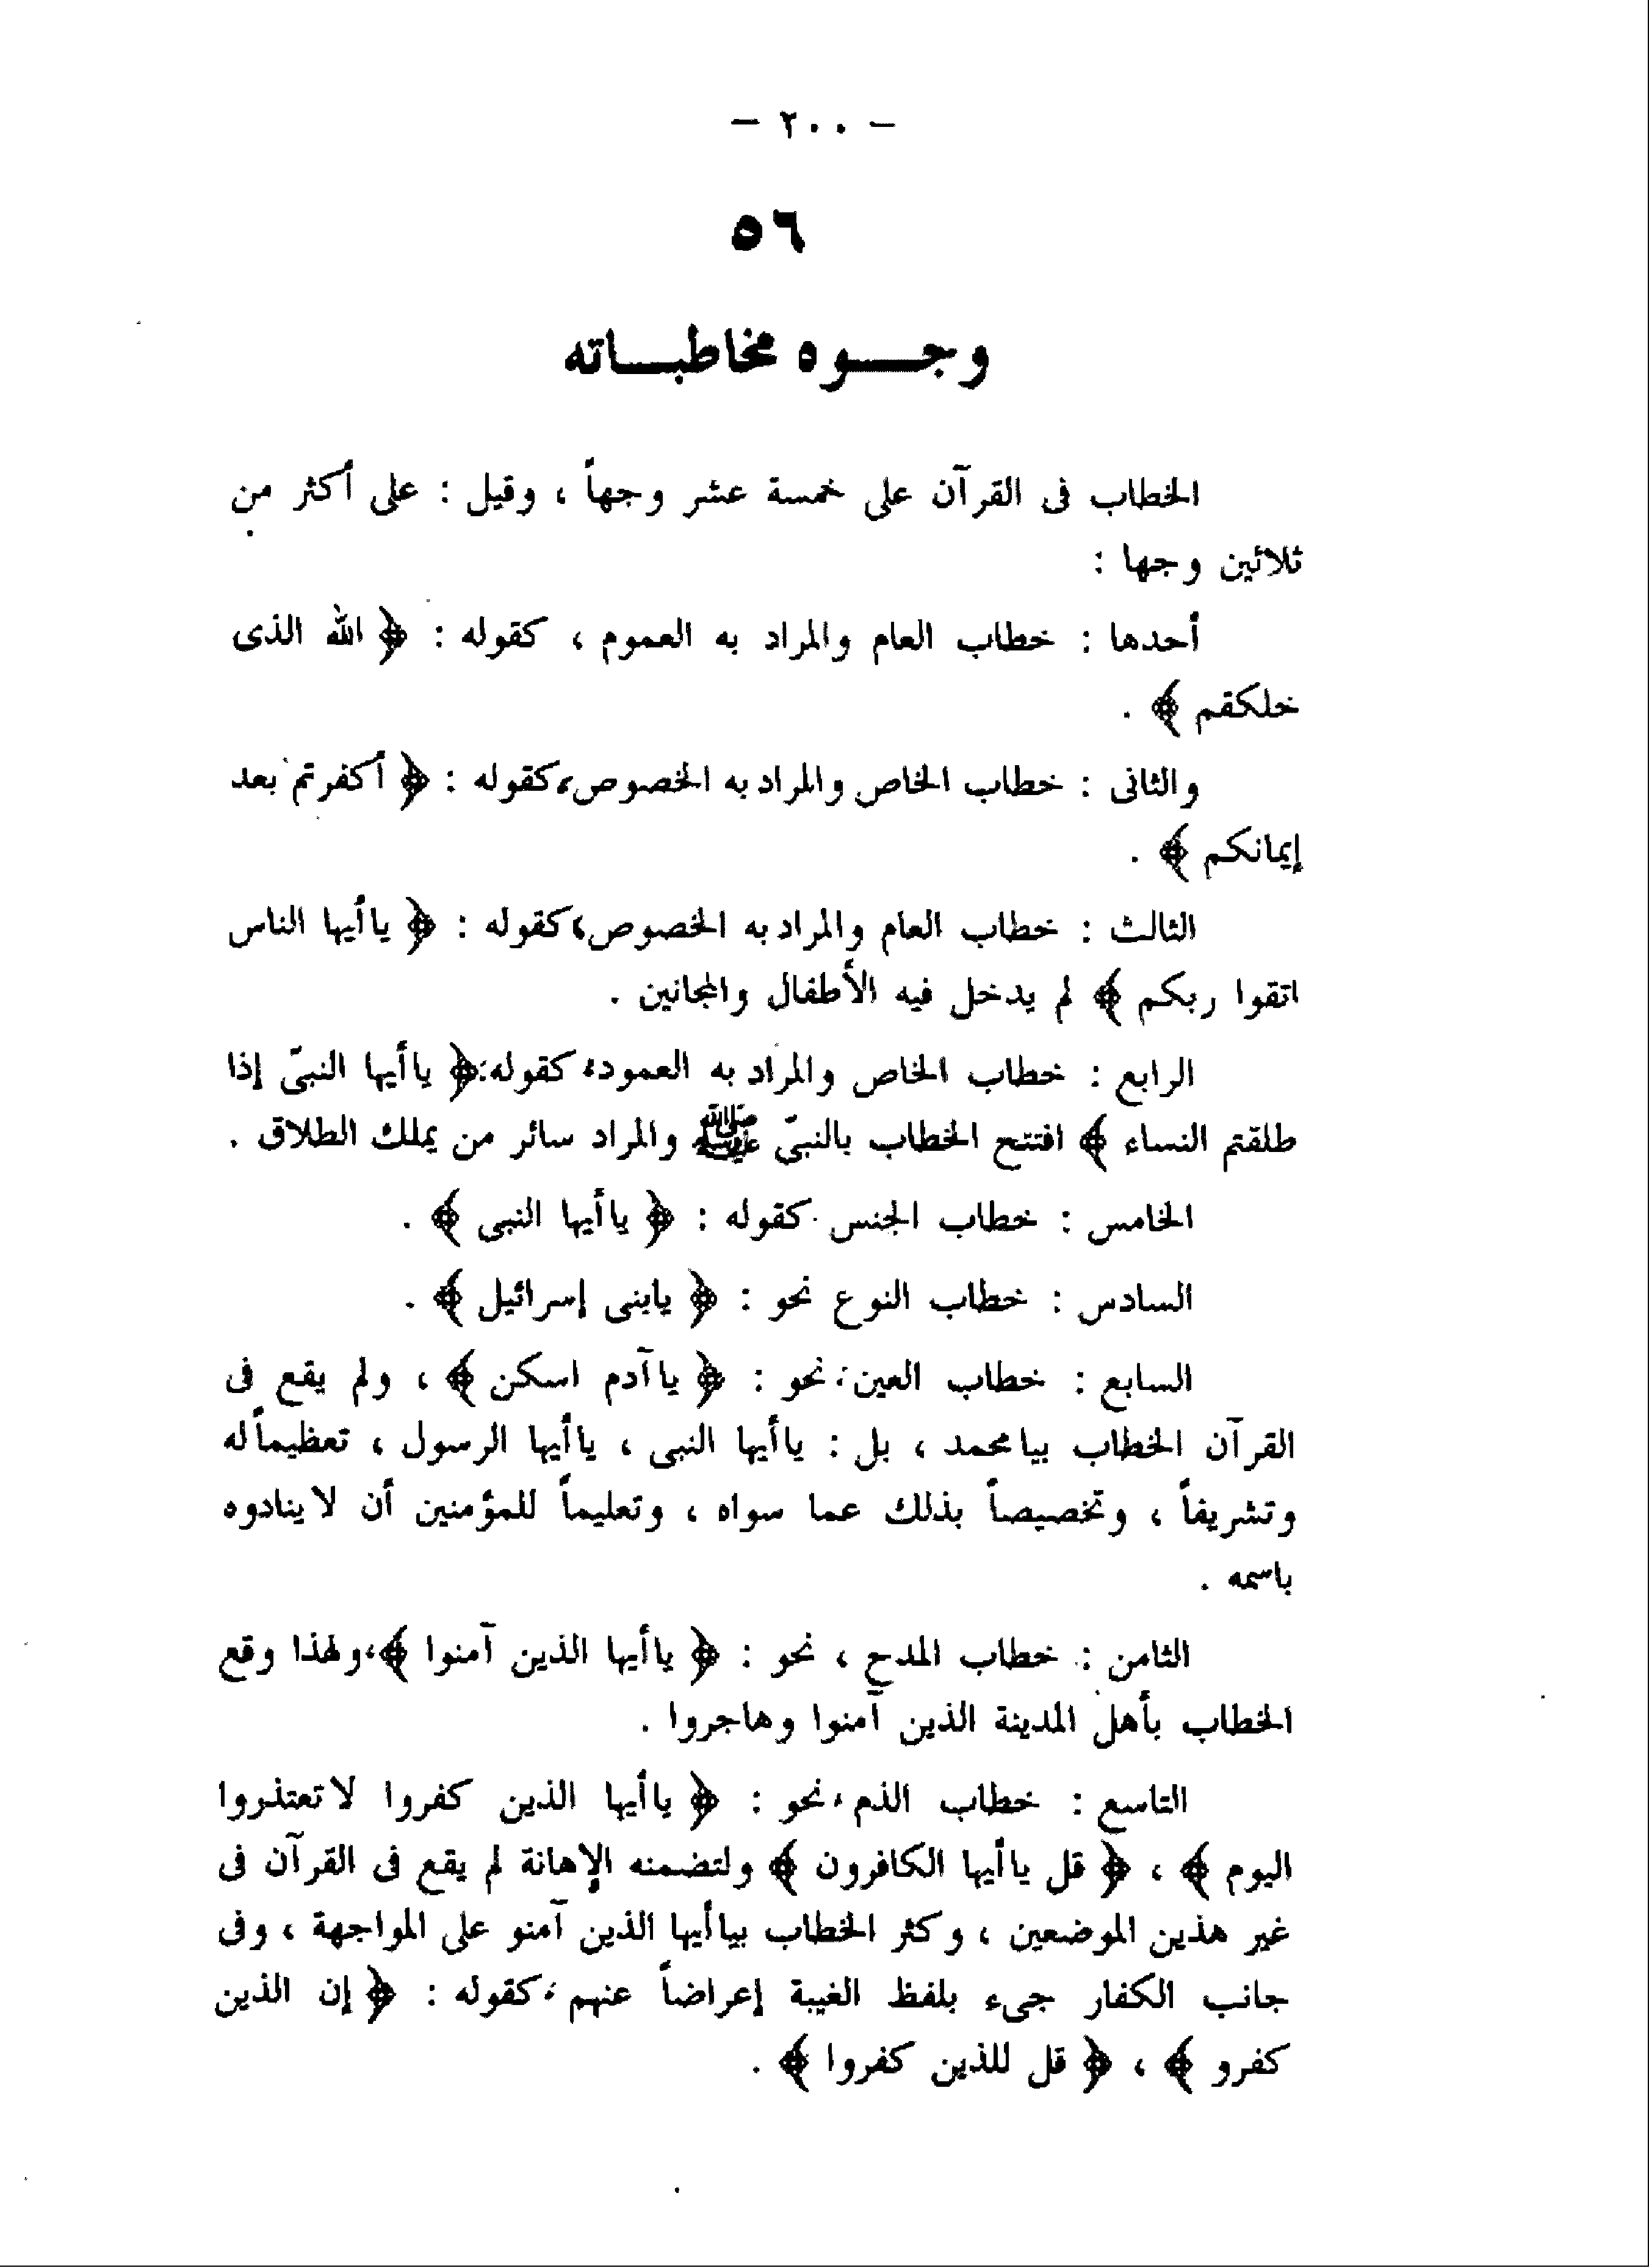 - ٢٠٠ -
٥٦
وجـــوه مخاطبـــاته
الخطاب فى القرآن على خمسة عشر وجهاً ، وقيل : على أكثر من
ثلاثين وجها :
أحدها : خطاب العام والمراد به العموم ، كقوله : ﴿ الله الذى
خلكقم ﴾ .
والثانى : خطاب الخاص والمراد به الخصوص، كقوله : ﴿ أكفرتم بعد
إيمانكم ﴾ .
الثالث : خطاب العام والمراد به الخصوص، كقوله : ﴿ ياأيها الناس
اتقوا ربكم ﴾ لم يدخل فيه الأطفال والمجانين .
الرابع : خطاب الخاص والمراد به العمود، كقوله: ﴿ ياأيها النبىّ إذا
طلقتم النساء ﴾ افتتح الخطاب بالنبىّ ﷺ والمراد سائر من يملك الطلاق .
الخامس : خطاب الجنس كقوله : ﴿ ياأيها النبى ﴾ .
السادس : خطاب النوع نحو : ﴿ يابنى إسرائيل ﴾ .
السابع : خطاب العين، نحو : ﴿ ياآدم اسكن ﴾ ، ولم يقع فى
القرآن الخطاب بيامحمد ، بل : ياأيها النبى ، ياأيها الرسول ، تعظيماً له
وتشريفاً ، وتخصيصاً بذلك عما سواه ، وتعليماً للمؤمنين أن لاينادوه
باسمه .
الثامن : خطاب المدح ، نحو : ﴿ ياأيها الذين آمنوا ﴾، ولهذا وقع
الخطاب بأهل المدينة الذين آمنوا وهاجروا .
التاسع : خطاب الذم، نحو : ﴿ ياأيها الذين كفروا لاتعتذروا
اليوم ﴾ ، ﴿ قل ياأيها الكافرون ﴾ ولتضمنه الإهانة لم يقع فى القرآن فى
غير هذين الموضعين ، وكثر الخطاب بياأيها الذين آمنو على المواجهة ، وفى
جانب الكفار جىء بلفظ الغيبة إعراضاً عنهم، كقوله : ﴿ إن الذين
كفرو ﴾ ، ﴿ قل للذين كفروا ﴾ .